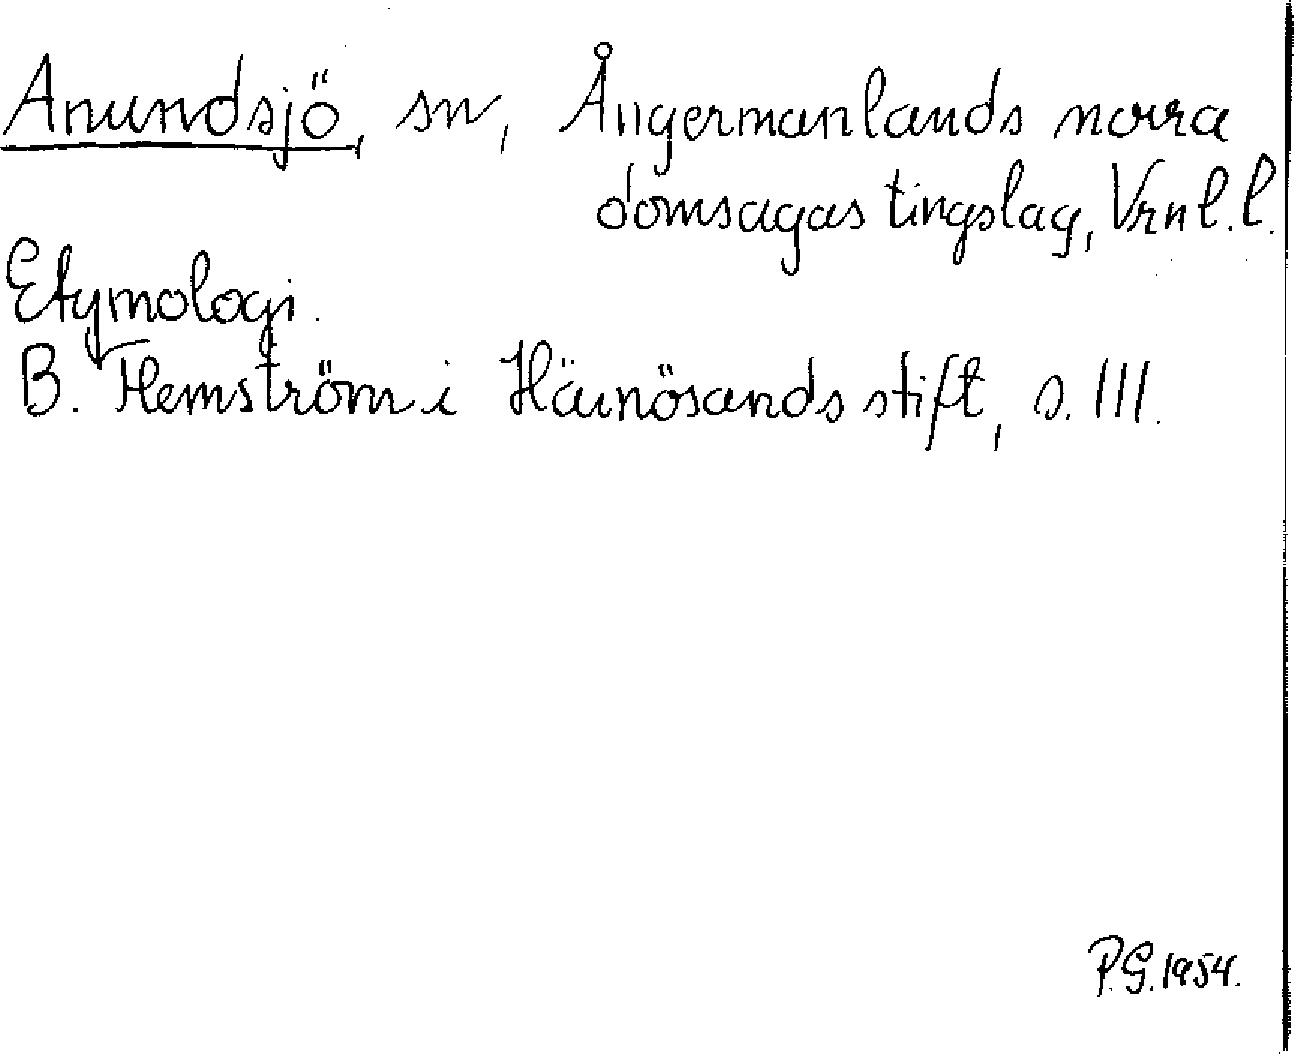 Anundsjö, sn, Ångermanlands norra
domsagas tingslag, Vrnl. l.
Etymologi.
B. Hemström i Härnösands stift, s. 111.
P.G. 1954.